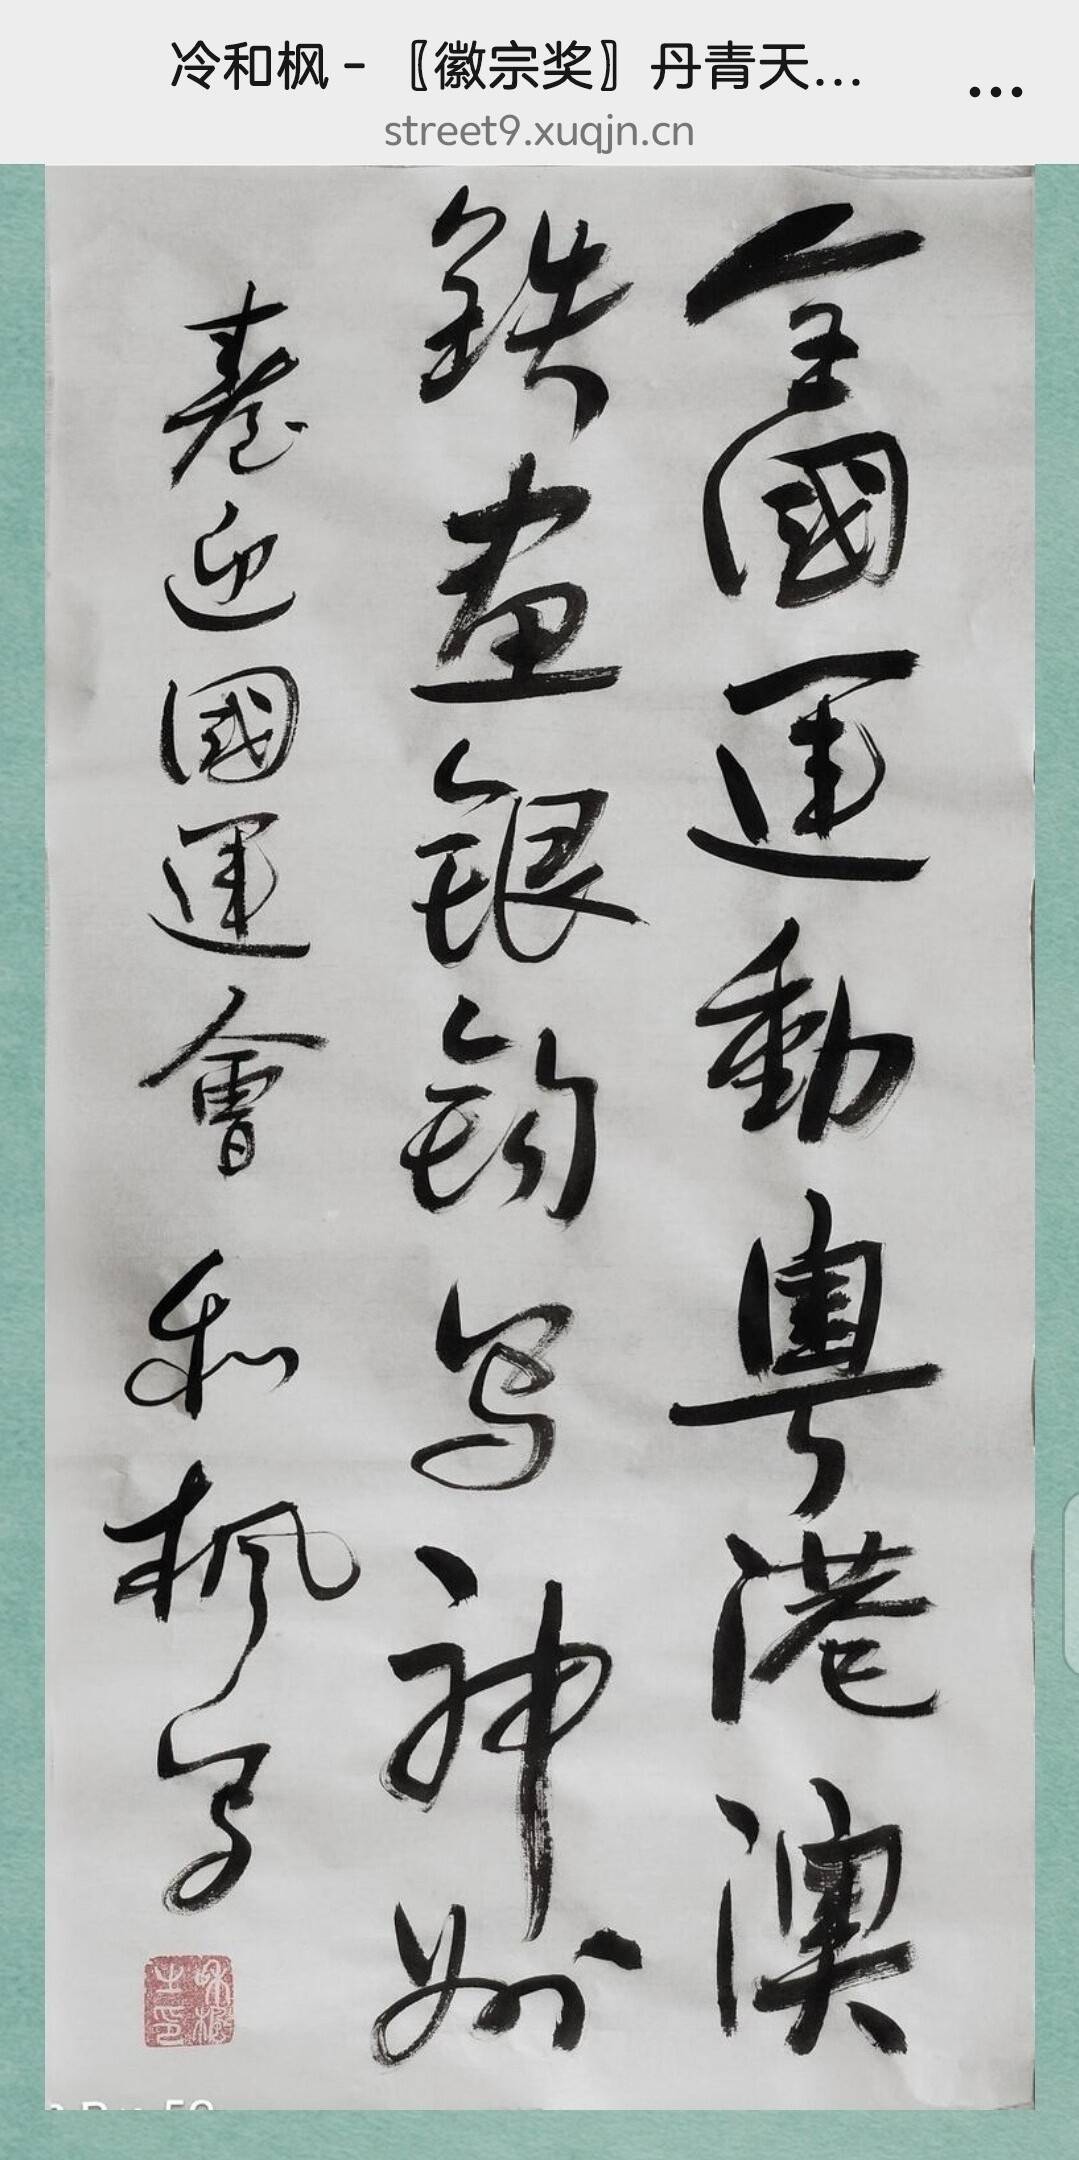 冷和枫 - 〖徽宗奖〗丹青天...
street9.xuqjn.cn
全國運動粤港澳
鉄畫銀鈎写神州
喜迎國運會 和楓写
和楓之印